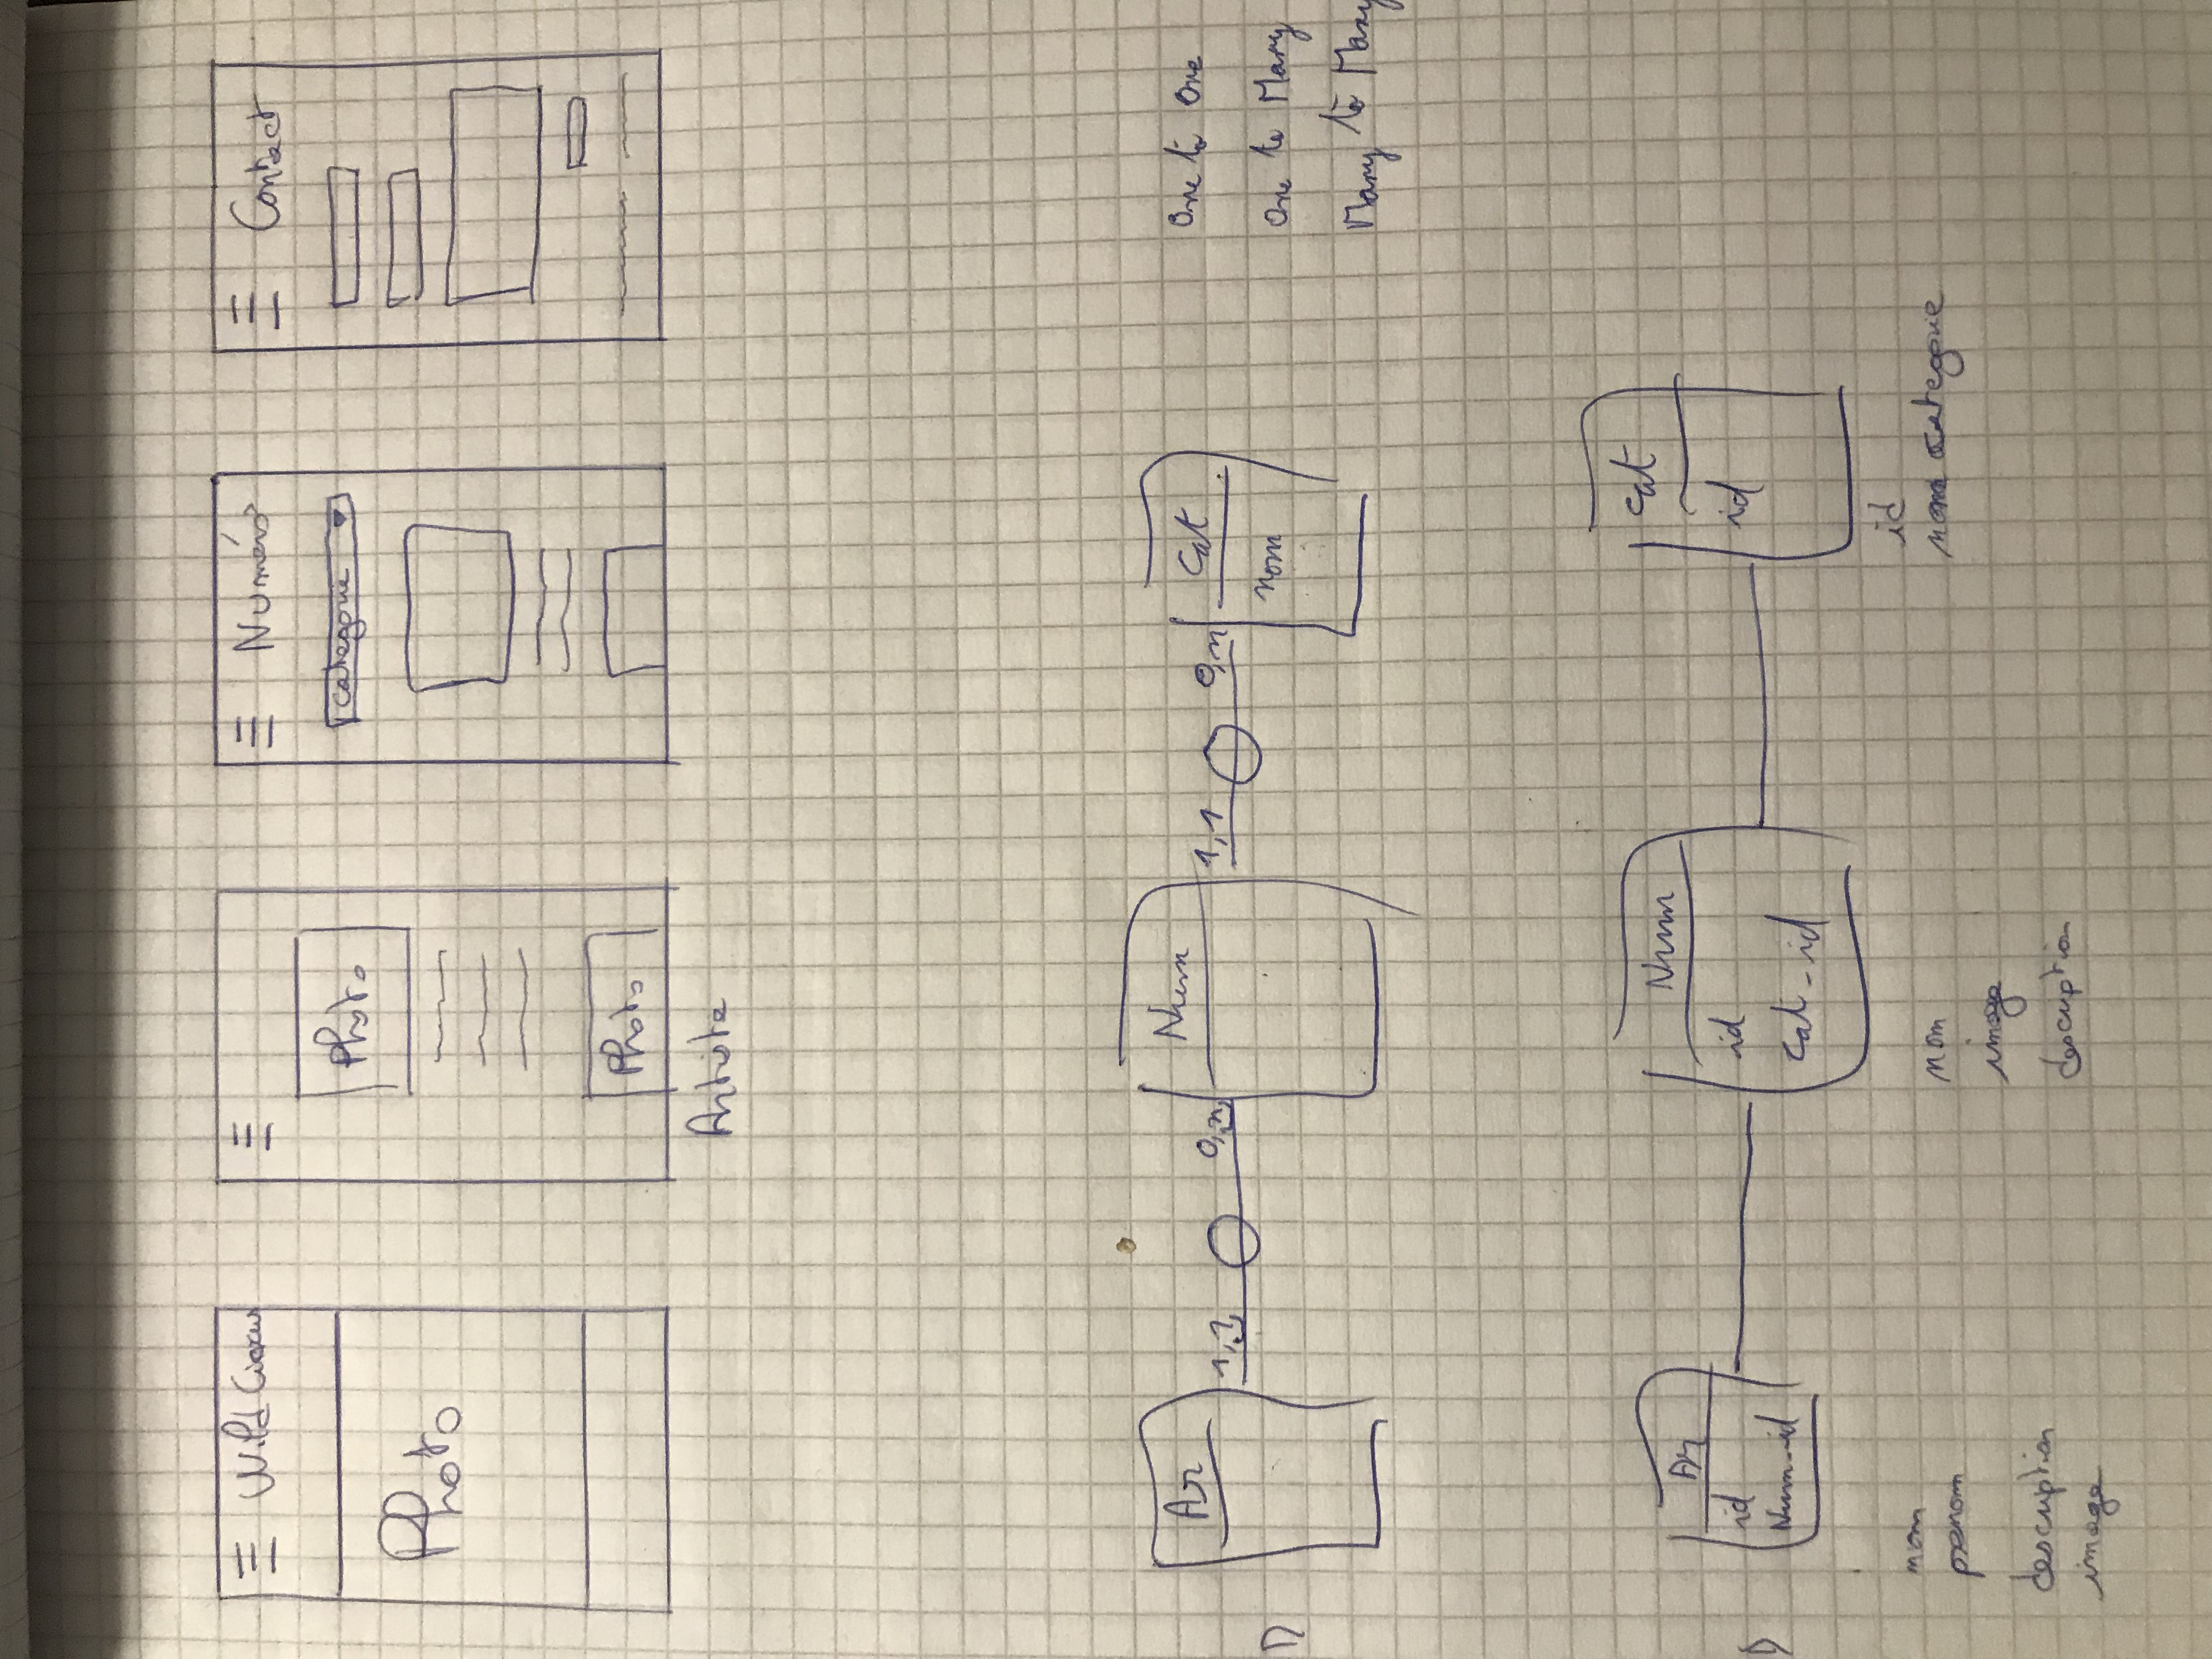 Wild Circus
Photo
Photo
Photo
Artiste
Numéro
categorie
Contact
Ar
0,n
Num
1,1
0,n
Cat
nom
One to One
One to Many
Many to Many
D
Ar
id
Num_id
nom
prenom
description
image
Num
id
Cat_id
nom
image
description
cat
id
id
nom categorie